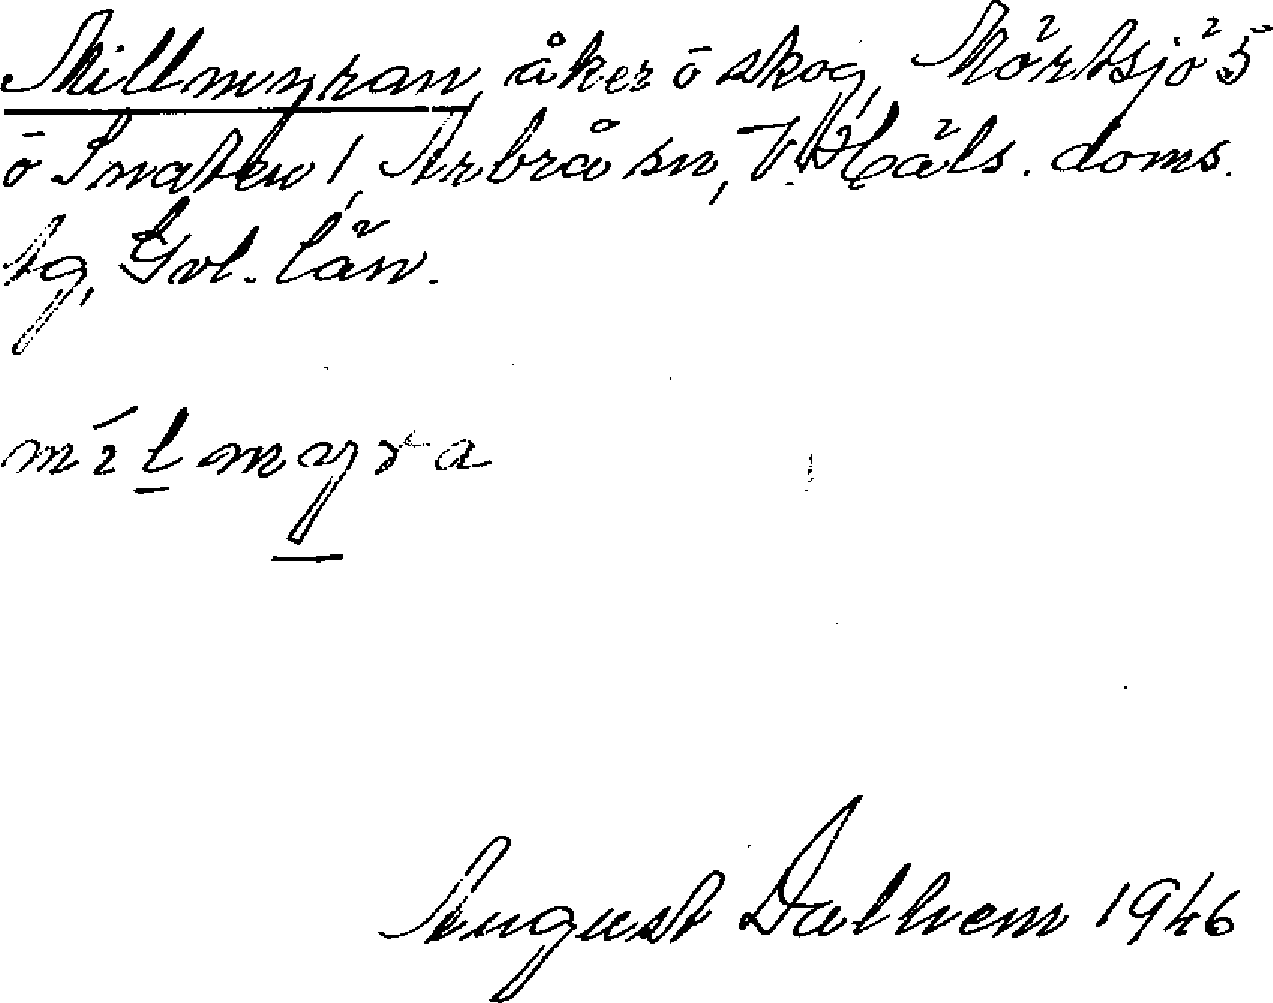 Millmyran, åker o skog, Mörtsjö 5
o Snaten 1, Arbrå sn, V. Häls. doms.
tg, Gvl. län.
mílmyra
August Dalhem 1946